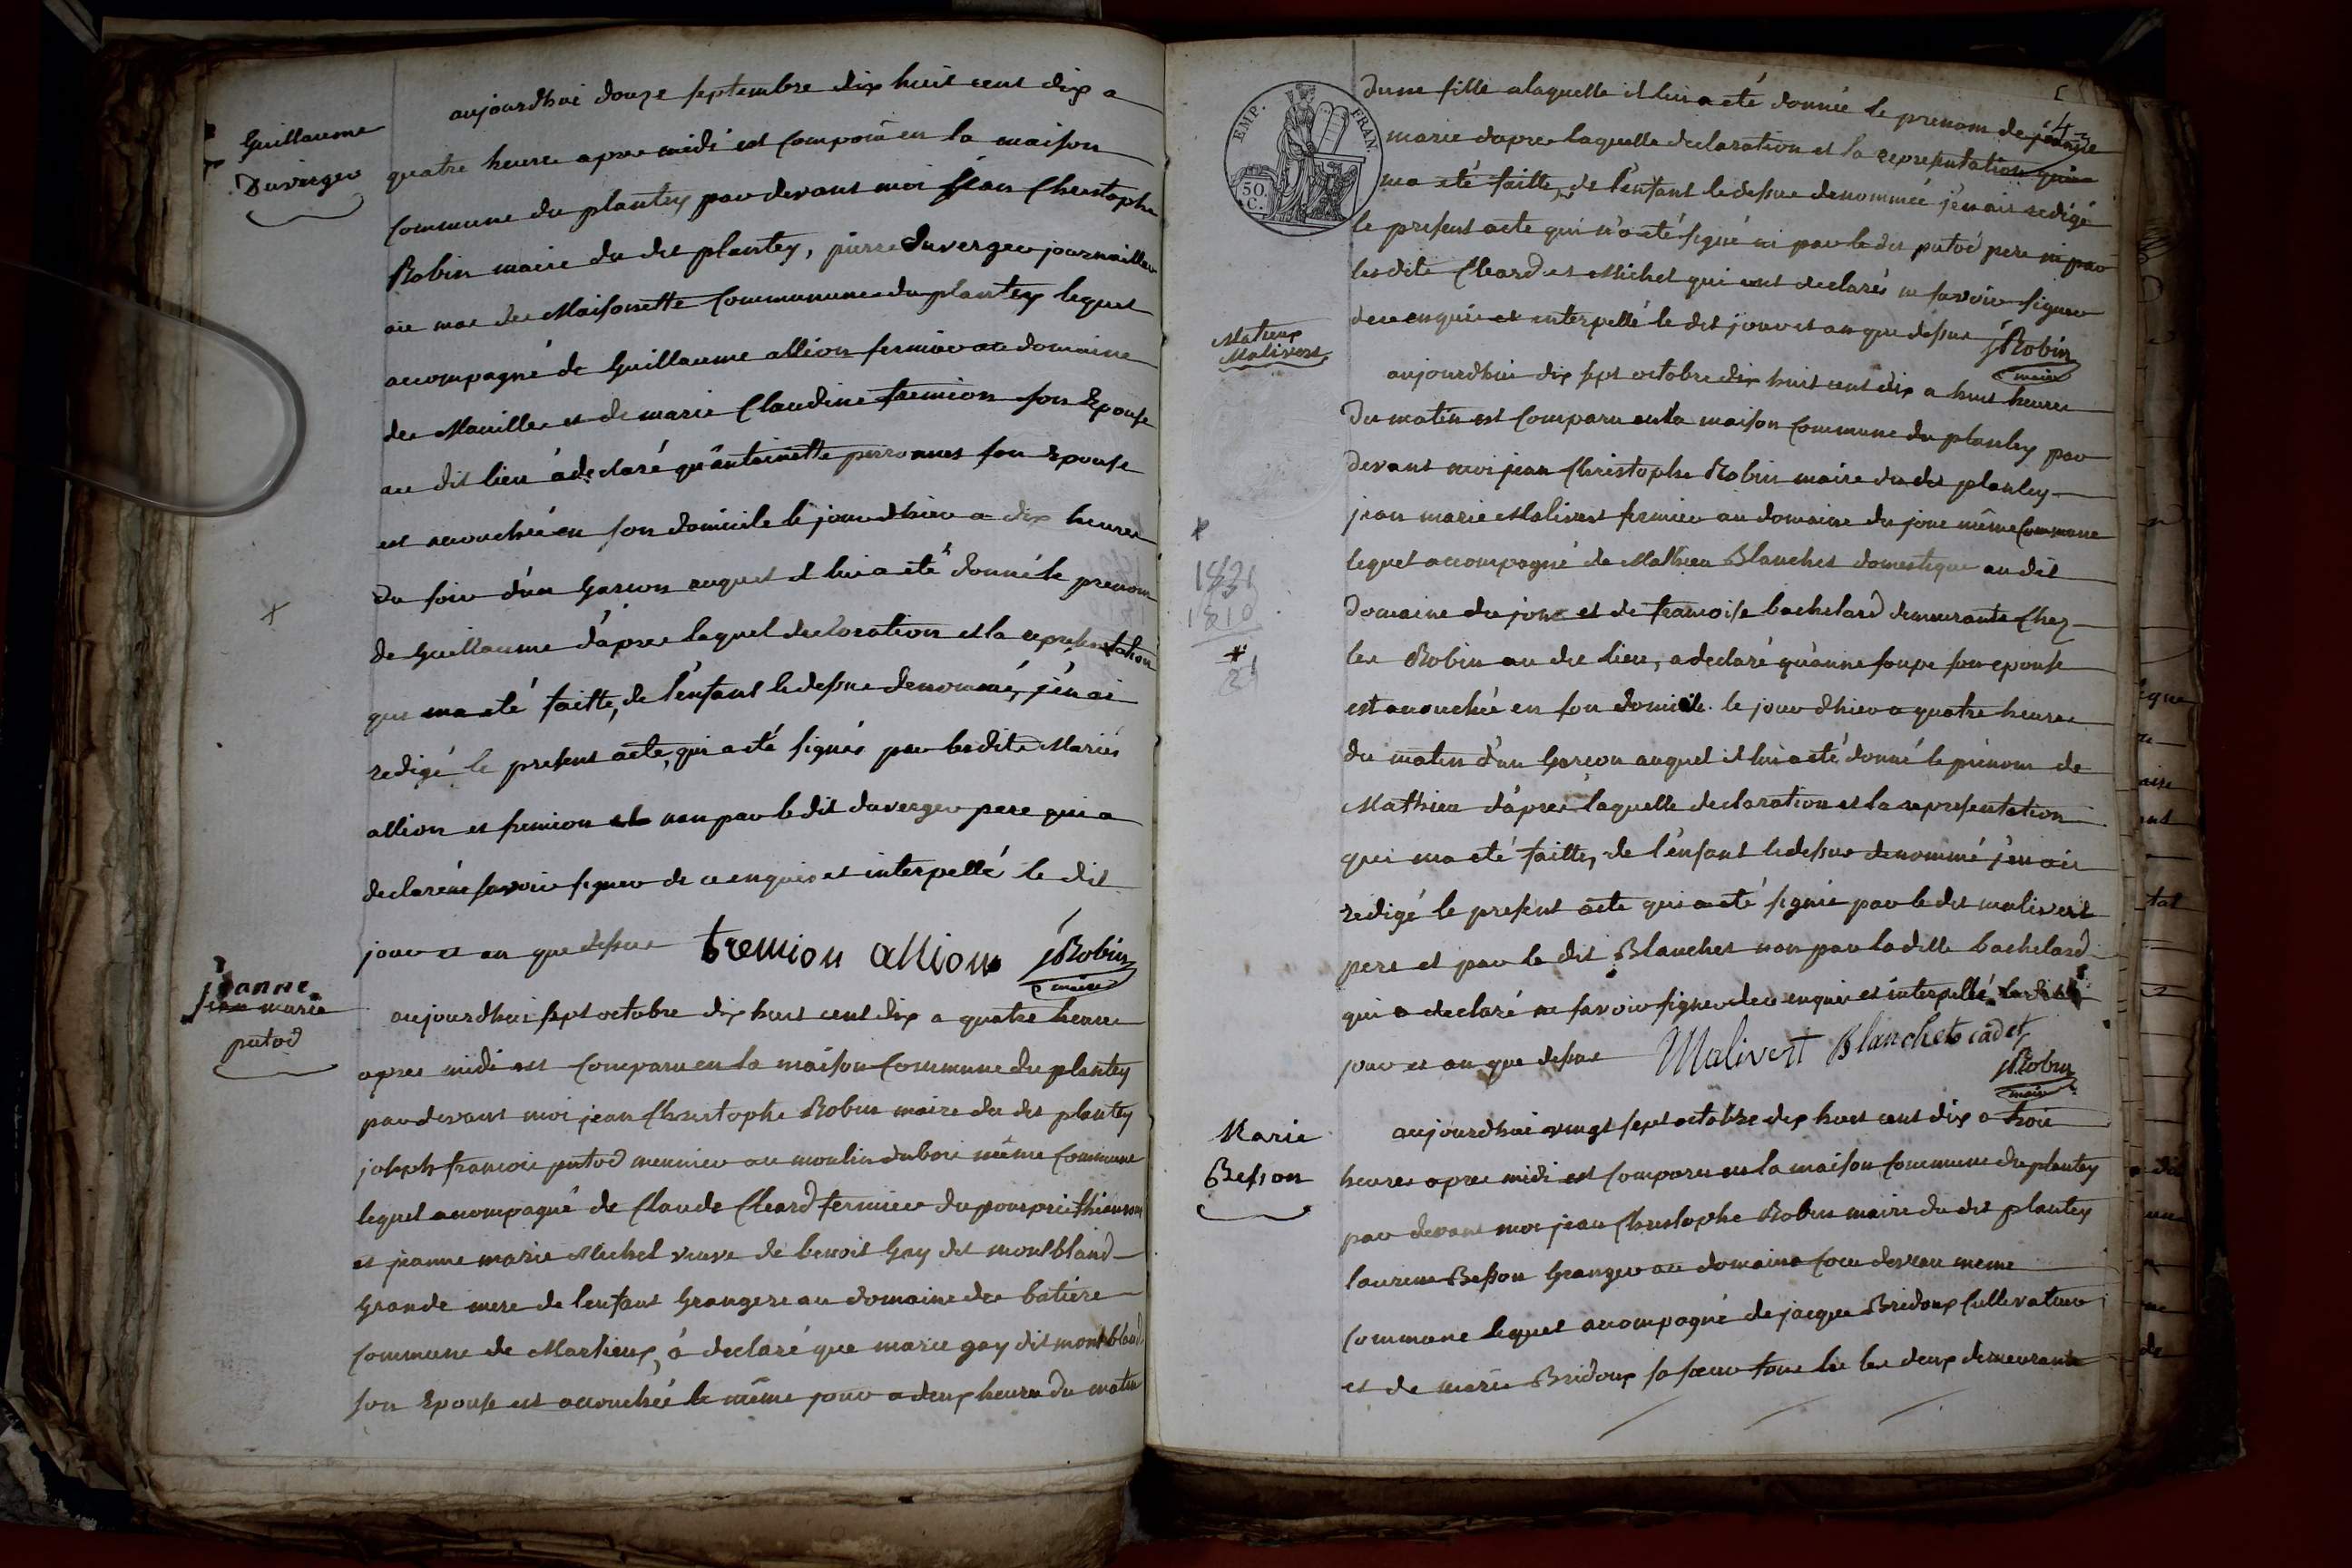 Guillaume
Duverger
aujourdhui douze septembre dix huit cent dix a
quatre heures apres midi est comparu en la maison
commune du plantey par devant moi jean Christophe
Robin maire du dit plantey, pierre Duverger journaillier
au mas des Maisonette commune du plantey lequel
accompagné de Guillaume allion fermier au domaine
des Mouilles et de marie Claudine fremion son Epouse
au dit lieu à declaré qu'antoinette perronnet son Epouse
est accouchée en son domicile le jour dhier a dix heures
du soir d'un Garson auquel il lui a eté donné le prenom
de Guillaume d'apres laquel declaration et la representation
qui ma eté faitte, de l'enfant ledessus denommé, j'en ai
redigé le present acte, qui a eté signés par lesdits Mariés
allion et fremion et non par le dit duverger pere qui a
declaré ne savoir signer de ce enquis et interpellé le dit
jour et an que dessus fremion allion JRobin
maire
jeanne
jean marie
putod
aujourdhui sept octobre dix huit cent dix a quatre heures
apres midi est comparu en la maison commune du plantey
par devant moi jean Christophe Robin maire du dit plantey
joseph francois putod meunier au moulin du bois même commune
lequel accompagné de Claude Cleard fermier du
et jeanne marie Michel veuve de benoit Gay dit montbland
Grande mere de l'enfant Grangere au domaine de batiere
commune de Marlieux, à declaré que marie gay dit montbland
son Epouse est accouchée le même jour a deux heures du matin
EMP. FRAN.
50 C.
4
dune fille alaquelle il lui a eté donnée le prenom de jeanne
marie dapres laquelle declaration et la representation qui
ma eté faitte, de l'enfant ledessus denommée j'en ais redigé
le present acte qui n'a eté signé ni par le dit putod pere ni par
lesdits Cleard et Michel qui ont declarés ne savoir signer
de ce enquis et interpellé le dit jour et an que dessus JRobin
maire
Matieux
Malivert
aujourdhui dix sept octobre dix huit cent dix a huit heures
du matin est comparu en la maison commune du plantey par
devant moi jean Christophe Robin maire du dit plantey
jean marie Malivert fermier au domaine du jonc même commune
lequel accompagné de Mathieu Blanchet domestique au dit
domaine du jonc et de francoise bachelard demeurante chez
les Robin au dit lieu, a declaré qu'anne soupe son epouse
est accouchée en son domicile le jour dhier a quatre heures
du matin d'un Garson auquel il lui a eté donné le prénom de
Mathieu d'apres laquelle declaration et la representation
qui ma eté faitte, de l'enfant ledessus denommé j'en ais
redigé le present acte qui a eté signé par le dit malivert
pere et par le dit Blanchet non par la ditte bachelard
qui a declaré ne savoir signer de ce enquis et interpellé
jour et an que dessus Malivert Blanchet cadet
JRobin
maire
1831
1810
21
Marie
Besson
aujourdhui vingt sept octobre dix huit cent dix a trois
heures apres midi est comparu en la maison commune du plantey
par devant moi jean Christophe Robin maire du dit plantey
laurent Besson Granger au domaine meme
commune lequel accompagné de jacque Bridoux cultivateur
et de marie Bridoux sa sœur tous les deux demeurants